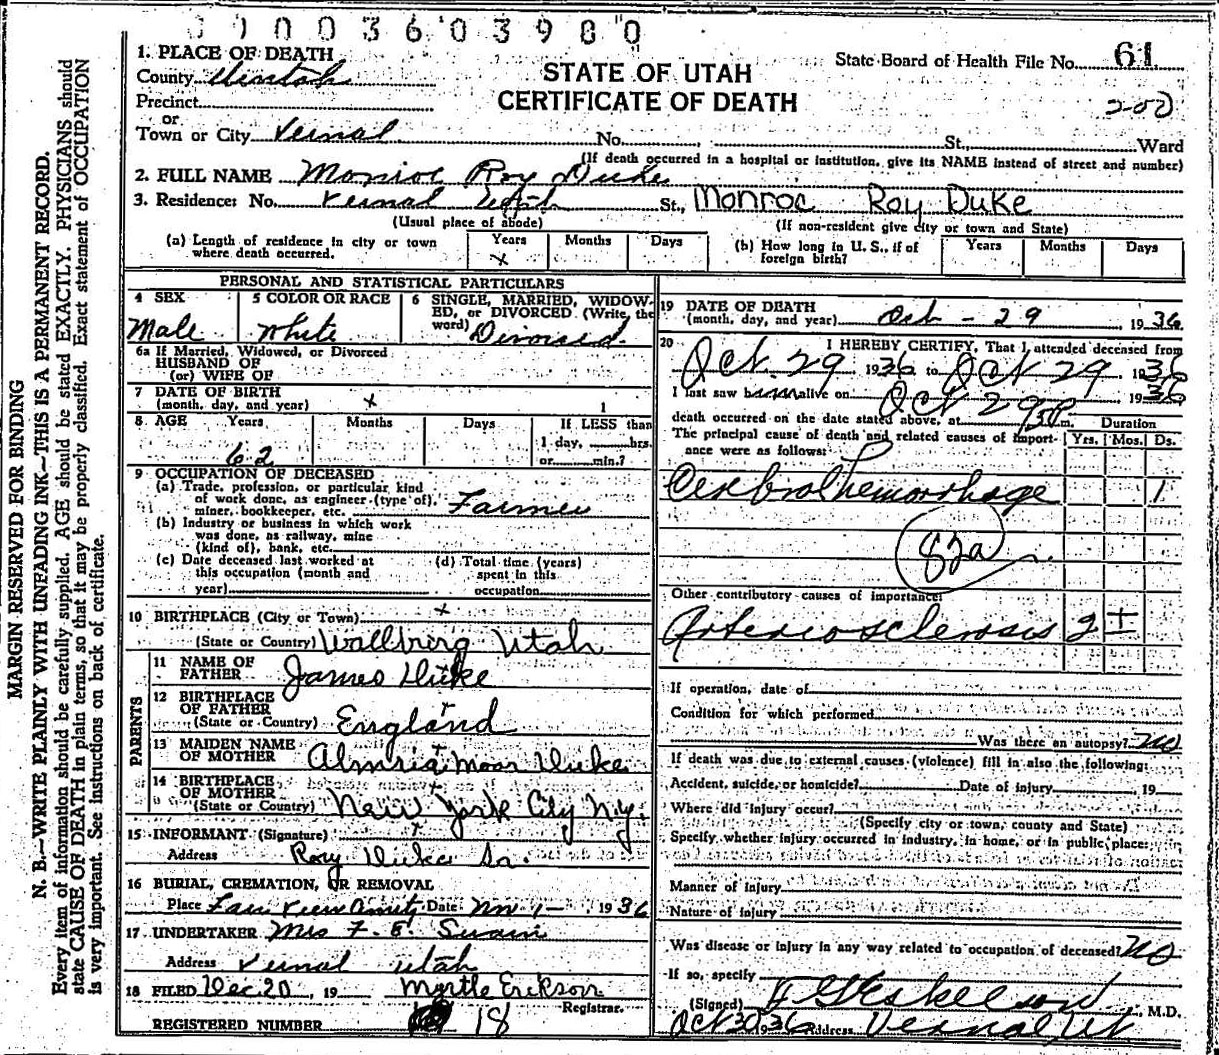 0 1 0 0 3 6 0 3 9 8 0
MARGIN RESERVED FOR BINDING
N. B.—WRITE PLAINLY WITH UNFADING INK—THIS IS A PERMANENT RECORD.
Every item of information should be carefully supplied. AGE should be stated EXACTLY. PHYSICIANS should
state CAUSE OF DEATH in plain terms, so that it may be properly classified. Exact statement of OCCUPATION
is very important. See instructions on back of certificate.
State Board of Health File No. 61
STATE OF UTAH
CERTIFICATE OF DEATH
200
1. PLACE OF DEATH
County Uintah
Precinct
or
Town or City Vernal No. St., Ward
(If death occurred in a hospital or institution, give its NAME instead of street and number)
2. FULL NAME Monroe Roy Duke
3. Residence: No. Vernal Utah St., Monroe Roy Duke
(Usual place of abode) (If non-resident give city or town and State)
(a) Length of residence in city or town where death occurred. Years x Months Days
(b) How long in U. S., if of foreign birth? Years Months Days
PERSONAL AND STATISTICAL PARTICULARS
4 SEX Male
5 COLOR OR RACE White
6 SINGLE, MARRIED, WIDOWED, or DIVORCED (Write the word) Divorced
6a If Married, Widowed, or Divorced
HUSBAND OF
(or) WIFE OF
7 DATE OF BIRTH
(month, day, and year) x 1
8 AGE Years Months Days If LESS than
62 1 day, hrs.
or min.?
9 OCCUPATION OF DECEASED
(a) Trade, profession, or particular kind
of work done, as engineer (type of),
miner, bookkeeper, etc. Farmer
(b) Industry or business in which work
was done, as railway, mine
(kind of), bank, etc.
(c) Date deceased last worked at
this occupation (month and
year)
(d) Total time (years)
spent in this
occupation
10 BIRTHPLACE (City or Town) x
(State or Country) Wallberg Utah
PARENTS
11 NAME OF FATHER James Duke
12 BIRTHPLACE OF FATHER
(State or Country) England
13 MAIDEN NAME OF MOTHER Almria Moor Duke
14 BIRTHPLACE OF MOTHER
(State or Country) New York City N.Y.
15 INFORMANT (Signature)
Address Roy Duke Sr.
16 BURIAL, CREMATION, OR REMOVAL
Place Date Nov 1 - 1936
17 UNDERTAKER Mrs F. E. Swain
Address Vernal Utah
18 FILED Dec. 20, 19 Myrtle Erickson
Registrar.
REGISTERED NUMBER 18
19 DATE OF DEATH
(month, day, and year) Oct - 29 1936
20 I HEREBY CERTIFY, That I attended deceased from
Oct. 29 1936 to Oct 29 1936
I last saw him alive on Oct 29 1936
death occurred on the date stated above, at m. Duration
The principal cause of death and related causes of importance were as follows: Yrs. Mos. Ds.
Cerebral hemorrhage 1
82a
Other contributory causes of importance:
Arteriosclerosis 2 ±
If operation, date of
Condition for which performed
Was there an autopsy? no
If death was due to external causes (violence) fill in also the following:
Accident, suicide, or homicide? Date of injury 19
Where did injury occur?
(Specify city or town, county and State)
Specify whether injury occurred in industry, in home, or in public place:
Manner of injury
Nature of injury
Was disease or injury in any way related to occupation of deceased? no
If so, specify
(Signed) M.D.
Oct 30 1936 Address Vernal Ut